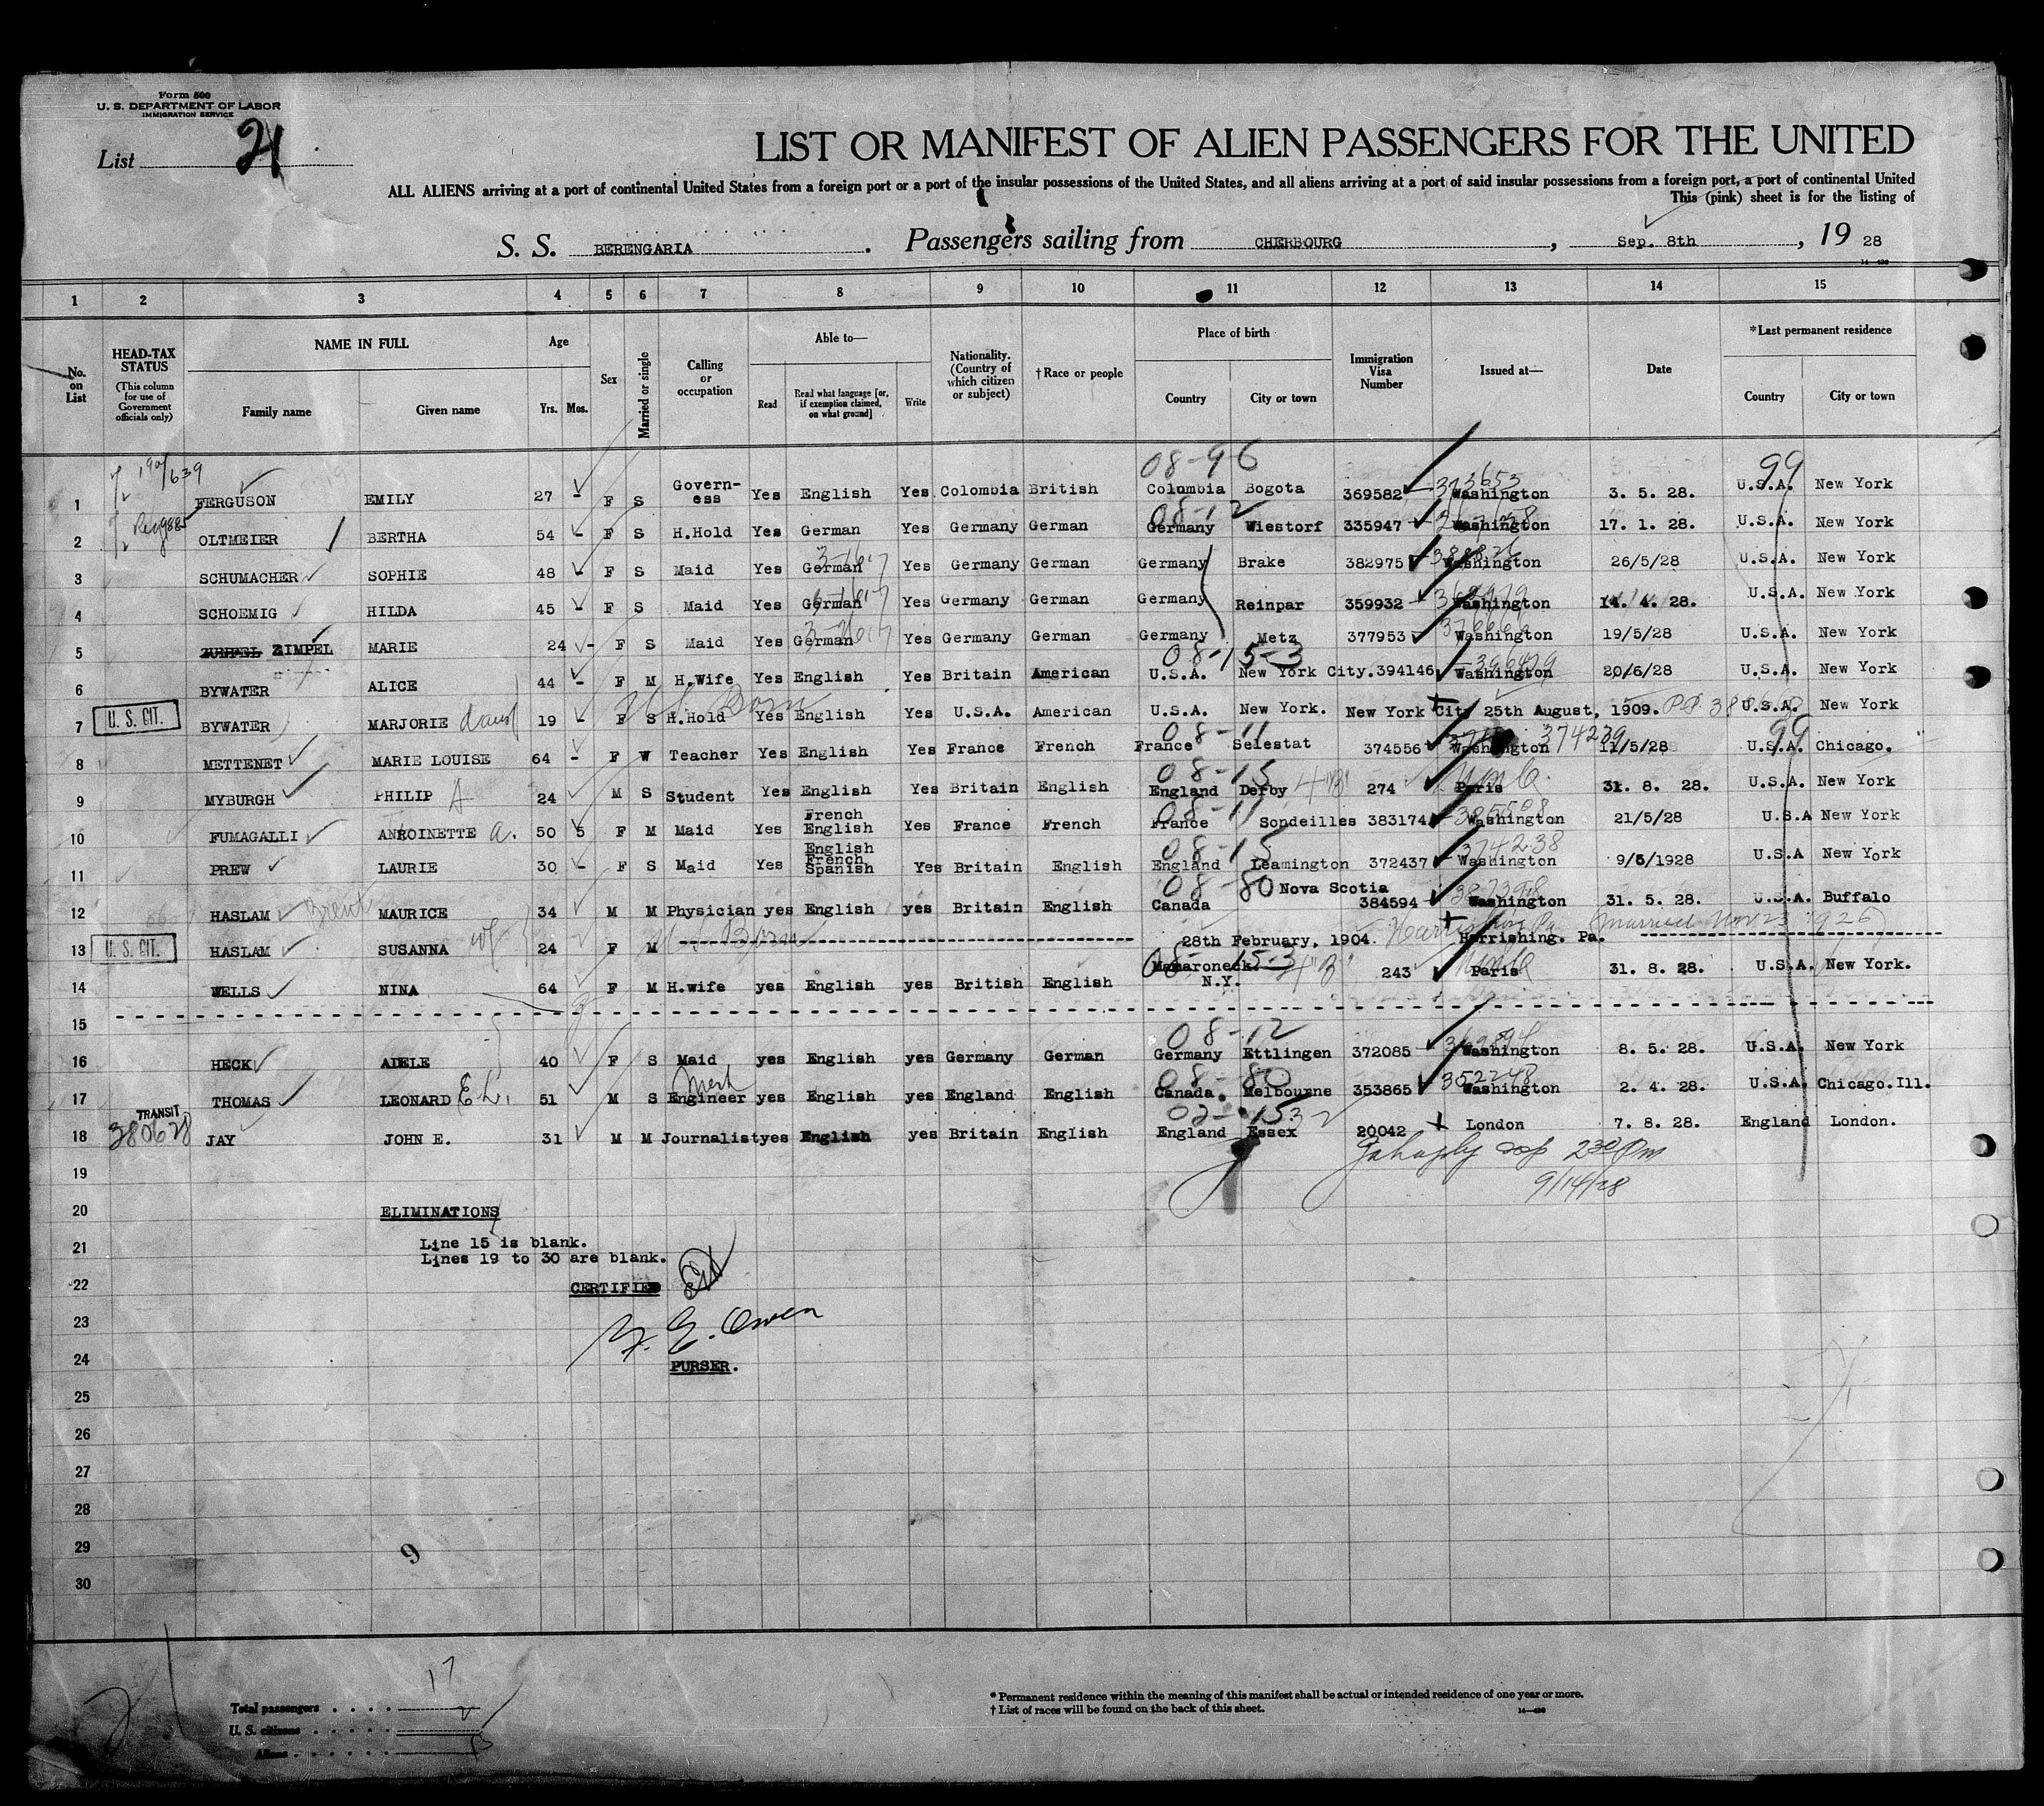 Form 500
U. S. DEPARTMENT OF LABOR
IMMIGRATION SERVICE
List 21
LIST OR MANIFEST OF ALIEN PASSENGERS FOR THE UNITED
ALL ALIENS arriving at a port of continental United States from a foreign port or a port of the insular possessions of the United States, and all aliens arriving at a port of said insular possessions from a foreign port, a port of continental United
This (pink) sheet is for the listing of
S. S. BERENGARIA. Passengers sailing from CHERBOURG, Sep. 8th, 19 28
14—430
1 2 3 4 5 6 7 8 9 10 11 12 13 14 15
No. on List
HEAD-TAX STATUS (This column for use of Government officials only)
NAME IN FULL Family name Given name
Age Yrs. Mos.
Sex
Married or single
Calling or occupation
Able to— Read Read what language [or, if exemption claimed, on what ground] Write
Nationality. (Country of which citizen or subject)
† Race or people
Place of birth Country City or town
Immigration Visa Number
Issued at—
Date
* Last permanent residence Country City or town
190/639 08-96 313653 99
1 FERGUSON EMILY 27 - F S Govern-ess Yes English Yes Colombia British Colombia Bogota 369582 Washington 3. 5. 28. U.S.A. New York
08-12
2 OLTMEIER BERTHA 54 - F S H.Hold Yes German Yes Germany German Germany Wiestorf 335947 Washington 17. 1. 28. U.S.A. New York
3 SCHUMACHER SOPHIE 48 - F S Maid Yes German Yes Germany German Germany Brake 382975 Washington 26/5/28 U.S.A. New York
4 SCHOEMIG HILDA 45 - F S Maid Yes German Yes Germany German Germany Reinpar 359932 Washington 14. 4. 28. U.S.A. New York
5 ZIMPEL MARIE 24 - F S Maid Yes German Yes Germany German Germany Metz 377953 Washington 19/5/28 U.S.A. New York
08-15-3 396479
6 BYWATER ALICE 44 - F M H.Wife Yes English Yes Britain American U.S.A. New York City. 394146 Washington 20/6/28 U.S.A. New York
U.S. Born
7 U. S. CIT. BYWATER MARJORIE daur 19 - F S H.Hold Yes English Yes U.S.A. American U.S.A. New York. New York City 25th August, 1909. U.S.A. New York
08-11 374239 99
8 METTENET MARIE LOUISE 64 - F W Teacher Yes English Yes France French France Selestat 374556 Washington 11/5/28 U.S.A. Chicago.
08-15 4"B"
9 MYBURGH PHILIP A 24 M S Student Yes English Yes Britain English England Derby 274 Paris 31. 8. 28. U.S.A. New York
08-11 385508
10 FUMAGALLI ANROINETTE a. 50 5 F M Maid Yes French English Yes France French France Sondeilles 383174 Washington 21/5/28 U.S.A New York
08-15 374238
11 PREW LAURIE 30 - F S Maid Yes English French Spanish Yes Britain English England Leamington 372437 Washington 9/5/1928 U.S.A New York
08-80 387398
12 HASLAM Brent MAURICE 34 M M Physician yes English yes Britain English Canada Nova Scotia 384594 Washington 31. 5. 28. U.S.A. Buffalo
U S Born Harrisburg Pa (Married Nov 23 1926)
13 U. S. CIT. HASLAM SUSANNA wf 24 F M 28th February, 1904. Harrishing. Pa.
08-15-3 4"B"
14 WELLS NINA 64 F M H.wife yes English yes British English Mamaroneck N.Y. 243 Paris 31. 8. 28. U.S.A. New York.
15
08-12
16 HECK ADELE 40 F S Maid yes English yes Germany German Germany Ettlingen 372085 Washington 8. 5. 28. U.S.A. New York
Mech 08-80 352248
17 THOMAS LEONARD E.L. 51 M S Engineer yes English yes England English Canada. Melbourne 353865 Washington 2. 4. 28. U.S.A. Chicago.Ill.
TRANSIT 380628 02-153
18 JAY JOHN E. 31 M M Journalist yes English yes Britain English England Essex 20042 London 7. 8. 28. England London.
230 Pm
9/14/28
19
20 ELIMINATIONS
21 Line 15 is blank.
Lines 19 to 30 are blank.
22 CERTIFIED
23 Owen
24 PURSER.
25
26
27
28
29
9
30
Total passengers . . . . 17
U. S. citizens . . . . . 2
Aliens . . . . . . 15
* Permanent residence within the meaning of this manifest shall be actual or intended residence of one year or more.
† List of races will be found on the back of this sheet.
14—430